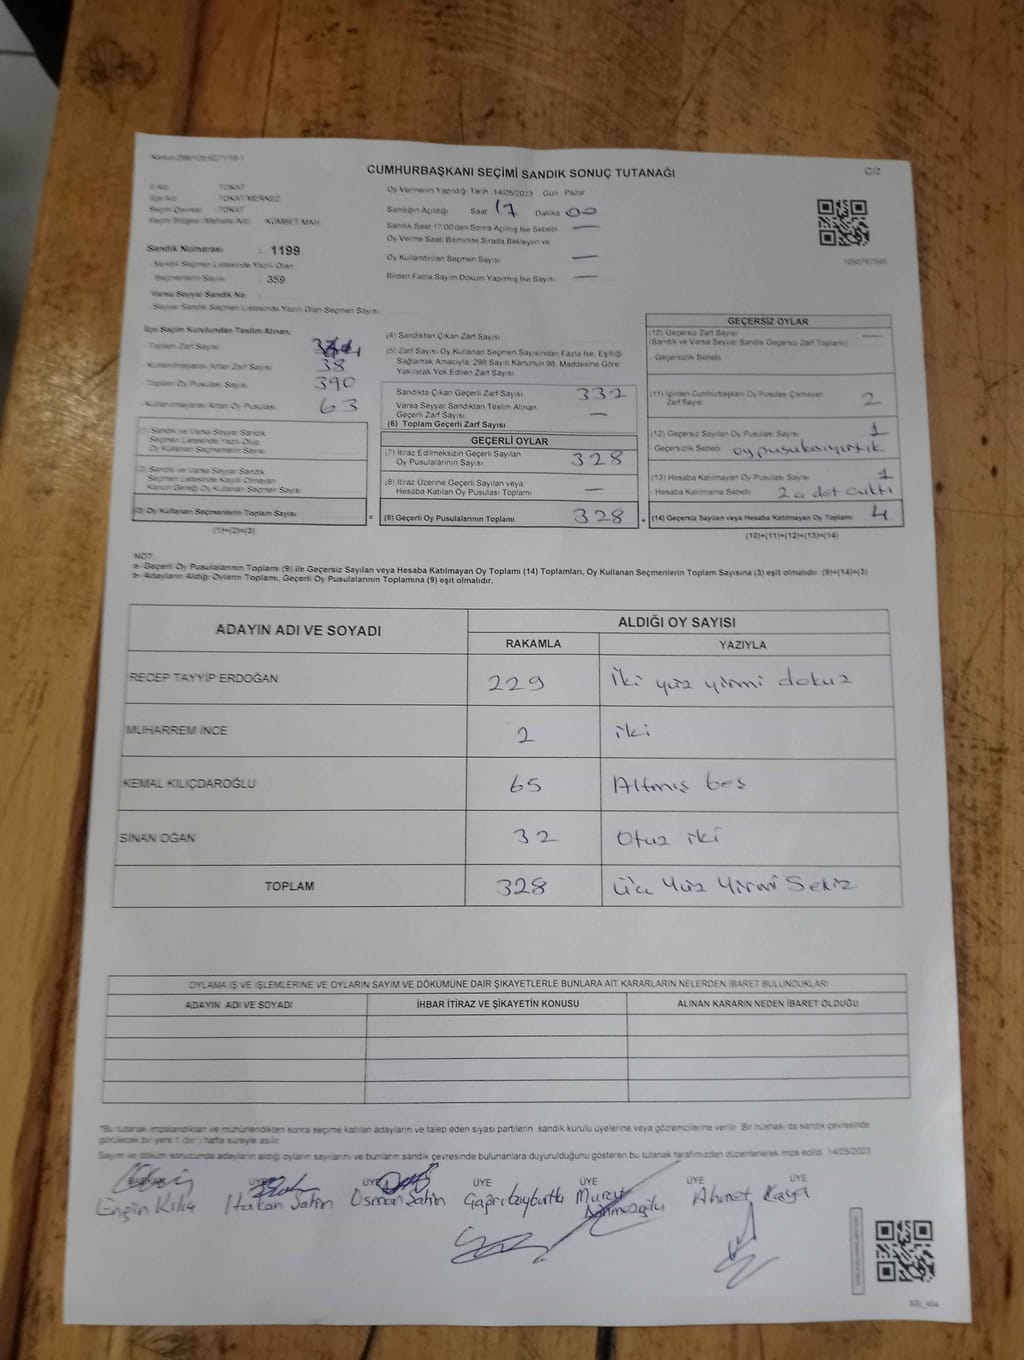 CUMHURBAŞKANI SEÇİMİ SANDIK SONUÇ TUTANAĞI
C/2
İl Adı : TOKAT
İlçe Adı : TOKAT MERKEZ
Seçim Çevresi : TOKAT
Seçim Bölgesi (Mahalle Adı) : KÜMBET MAH.
Oy Vermenin Yapıldığı Tarih 14/05/2023 Gün Pazar
Sandığın Açıldığı Saat 17 Dakika 00
Sandık Saat 17:00'den Sonra Açılmış İse Sebebi —
Oy Verme Saati Bitiminde Sırada Bekleyen ve
Oy Kullandırılan Seçmen Sayısı —
Birden Fazla Sayım Döküm Yapılmış İse Sayısı —
Sandık Numarası : 1199
Sandık Seçmen Listesinde Yazılı Olan
Seçmenlerin Sayısı : 359
Varsa Seyyar Sandık No
Seyyar Sandık Seçmen Listesinde Yazılı Olan Seçmen Sayısı
İlçe Seçim Kurulundan Teslim Alınan;
Toplam Zarf Sayısı
Kullanılmayarak Artan Zarf Sayısı 38
Toplam Oy Pusulası Sayısı 390
Kullanılmayarak Artan Oy Pusulası 63
(1) Sandık ve Varsa Seyyar Sandık
Seçmen Listesinde Yazılı Olup
Oy Kullanan Seçmenlerin Sayısı
(2) Sandık ve Varsa Seyyar Sandık
Seçmen Listesinde Kayıtlı Olmayan
Kanun Gereği Oy Kullanan Seçmen Sayısı
(3) Oy Kullanan Seçmenlerin Toplam Sayısı
(1)+(2)=(3)
(4) Sandıktan Çıkan Zarf Sayısı
(5) Zarf Sayısı Oy Kullanan Seçmen Sayısından Fazla İse, Eşitliği
Sağlamak Amacıyla, 298 Sayılı Kanunun 98. Maddesine Göre
Yakılarak Yok Edilen Zarf Sayısı
Sandıkta Çıkan Geçerli Zarf Sayısı 332
Varsa Seyyar Sandıktan Teslim Alınan
Geçerli Zarf Sayısı —
(6) Toplam Geçerli Zarf Sayısı
GEÇERLİ OYLAR
(7) İtiraz Edilmeksizin Geçerli Sayılan
Oy Pusulalarının Sayısı 328
(8) İtiraz Üzerine Geçerli Sayılan veya
Hesaba Katılan Oy Pusulası Toplamı —
= (9) Geçerli Oy Pusulalarının Toplamı 328
GEÇERSİZ OYLAR
(10) Geçersiz Zarf Sayısı —
(Sandık ve Varsa Seyyar Sandık Geçersiz Zarf Toplamı)
- Geçersizlik Sebebi
(11) İçinden Cumhurbaşkanı Oy Pusulası Çıkmayan
Zarf Sayısı 2
(12) Geçersiz Sayılan Oy Pusulası Sayısı 1
- Geçersizlik Sebebi oy pusulası yırtık
(13) Hesaba Katılmayan Oy Pusulası Sayısı 1
- Hesaba Katılmama Sebebi 2 adet çıktı
+ (14) Geçersiz Sayılan veya Hesaba Katılmayan Oy Toplamı 4
(10)+(11)+(12)+(13)=(14)
NOT:
a- Geçerli Oy Pusulalarının Toplamı (9) ile Geçersiz Sayılan veya Hesaba Katılmayan Oy Toplamı (14) Toplamları, Oy Kullanan Seçmenlerin Toplam Sayısına (3) eşit olmalıdır. (9)+(14)=(3)
b- Adayların Aldığı Oyların Toplamı, Geçerli Oy Pusulalarının Toplamına (9) eşit olmalıdır.
ADAYIN ADI VE SOYADI
ALDIĞI OY SAYISI
RAKAMLA YAZIYLA
RECEP TAYYİP ERDOĞAN 229 iki yüz yirmi dokuz
MUHARREM İNCE 2 iki
KEMAL KILIÇDAROĞLU 65 Altmış beş
SİNAN OĞAN 32 Otuz iki
TOPLAM 328 üç Yüz Yirmi Sekiz
OYLAMA İŞ VE İŞLEMLERİNE VE OYLARIN SAYIM VE DÖKÜMÜNE DAİR ŞİKAYETLERLE BUNLARA AİT KARARLARIN NELERDEN İBARET BULUNDUKLARI
ADAYIN ADI VE SOYADI İHBAR İTİRAZ VE ŞİKAYETİN KONUSU ALINAN KARARIN NEDEN İBARET OLDUĞU
*Bu tutanak imzalandıktan ve mühürlendikten sonra seçime katılan adayların ve talep eden siyasi partilerin sandık kurulu üyelerine veya gözlemcilerine verilir. Bir nüshası da sandık çevresinde
görülecek bir yere 1 (bir) hafta süreyle asılır.
Sayım ve döküm sonucunda adayların aldığı oyların sayılarını ve bunların sandık çevresinde bulunanlara duyurulduğunu gösteren bu tutanak tarafımızdan düzenlenerek imza edildi. 14/05/2023
ÜYE ÜYE ÜYE ÜYE ÜYE ÜYE
Engin Kılıç Hakan Şahin Osman Şahin Ahmet Kaya